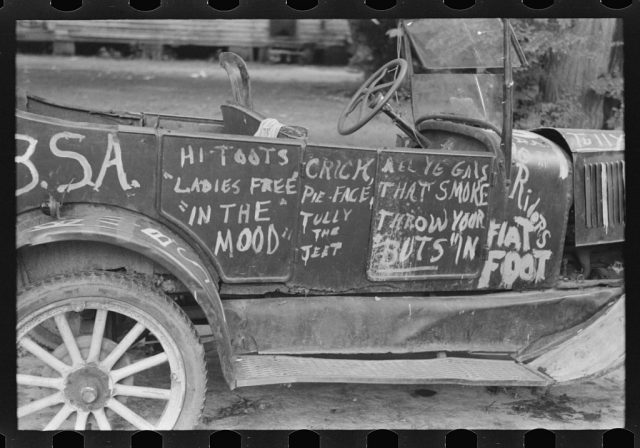 B.S.A.
HI-TOOTS
"LADIES FREE"
"IN THE
MOOD"
CRICK,
PIE-FACE,
TULLY
THE
JEET
ALL YE GALS
THAT SMOKE
THROW YOUR
"BUTS" IN
Riders
FLAT
FOOT